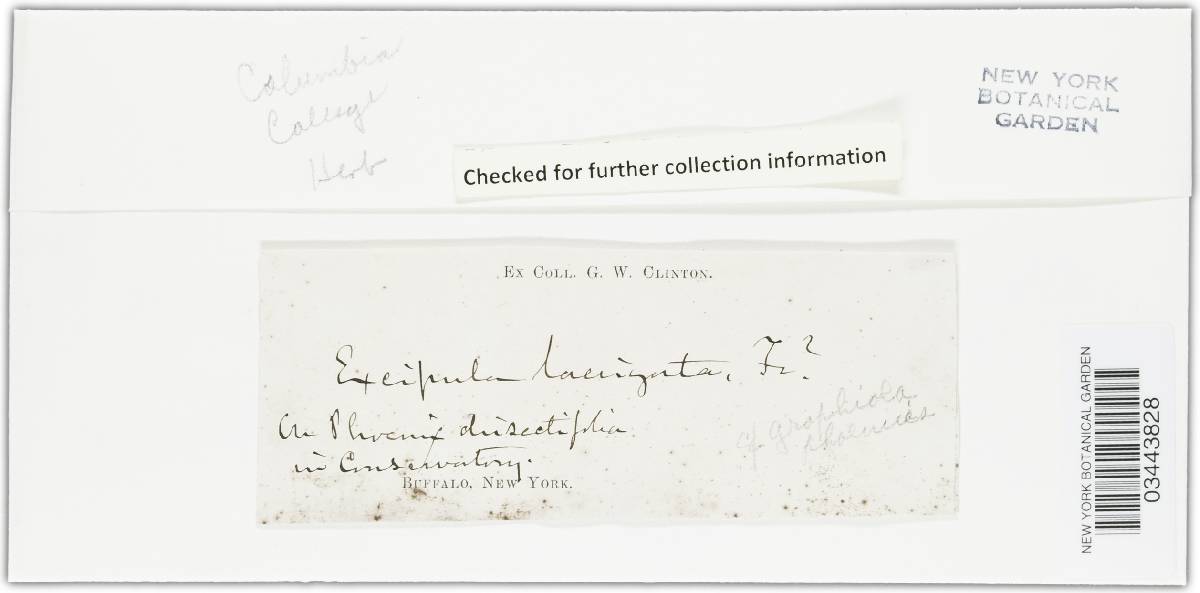 Columbia
College
Herb
NEW YORK
BOTANICAL
GARDEN
Checked for further collection information
EX COLL. G. W. CLINTON.
Excipula laevigata, Fr?
On Phoenix dissectifolia
in Conservatory.
cf Graphiola
phoenicis
BUFFALO, NEW YORK.
NEW YORK BOTANICAL GARDEN
03443828